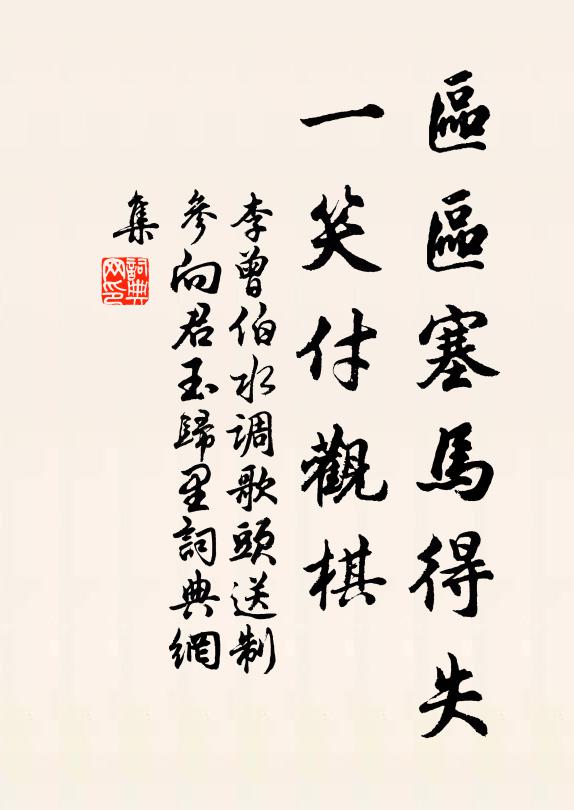 區區塞馬得失
一笑付觀棋
李曾伯水調歌頭送制
參向君玉歸里詞典網
集
詞典网印